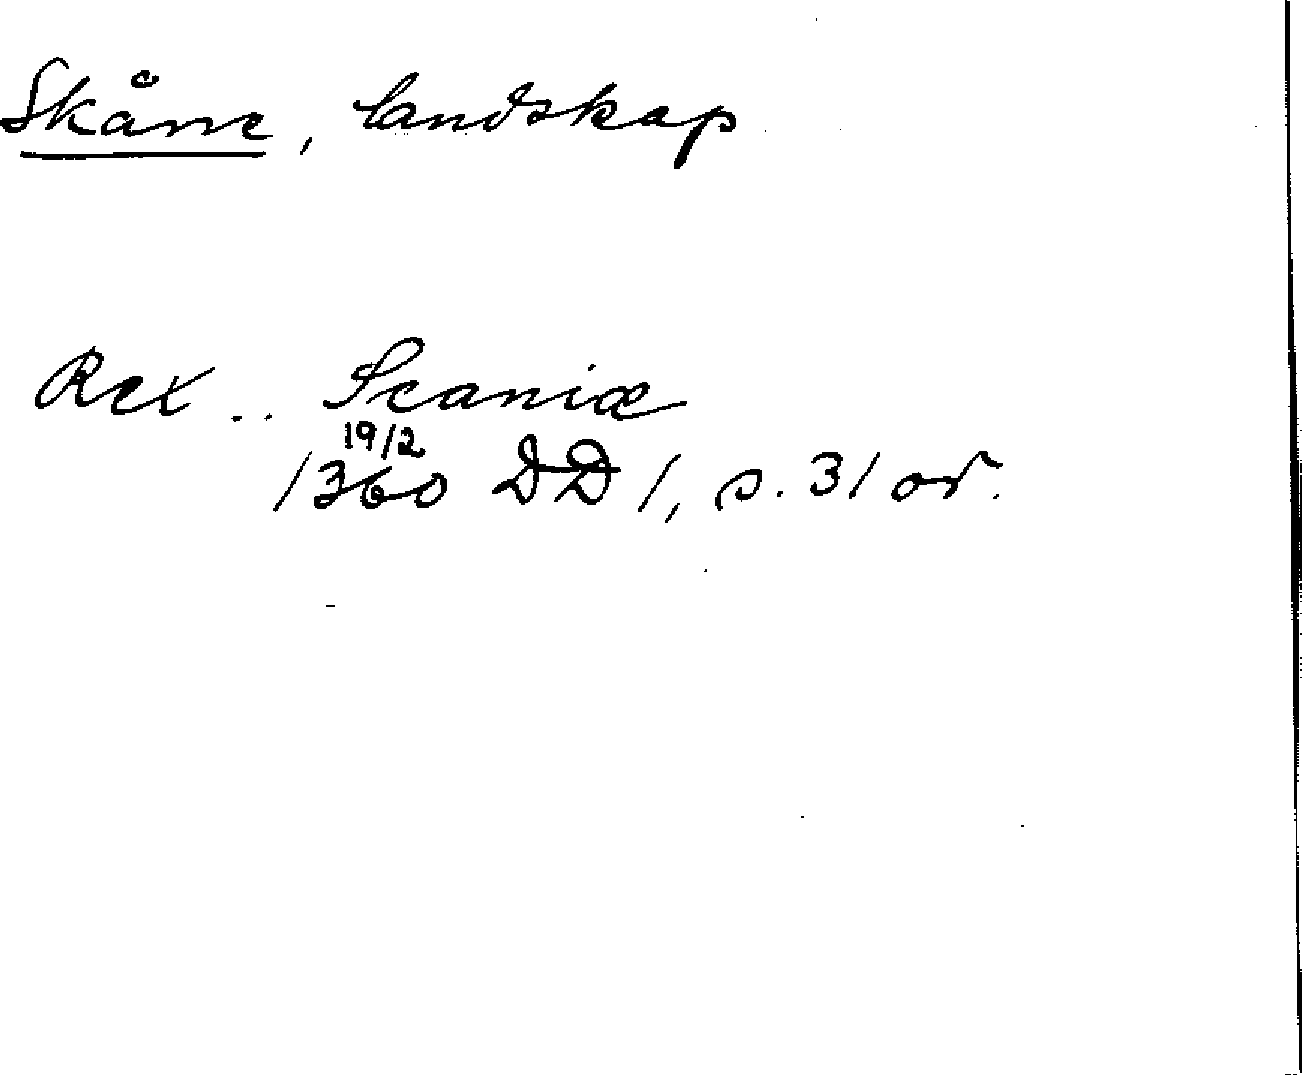 Skåne, landskap
Rex .. Scaniæ
19/2
1360 DD 1, s. 31 or.